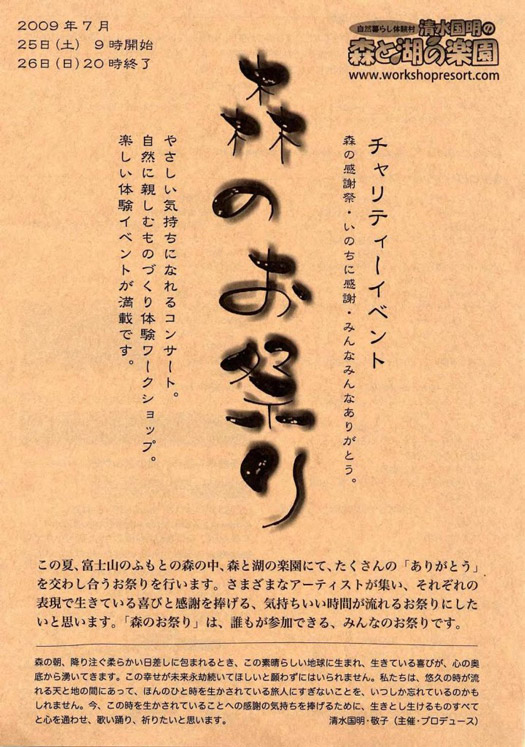 2009年7月
25日(土) 9時開始
26日(日)20時終了
自然暮らし体験村 清水国明の
森と湖の楽園
www.workshopresort.com
チャリティーイベント
森の感謝祭・いのちに感謝・みんなみんなありがとう。
森のお祭り
やさしい気持ちになれるコンサート。
自然に親しむものづくり体験ワークショップ。
楽しい体験イベントが満載です。
この夏、富士山のふもとの森の中、森と湖の楽園にて、たくさんの「ありがとう」
を交わし合うお祭りを行います。さまざまなアーティストが集い、それぞれの
表現で生きている喜びと感謝を捧げる、気持ちいい時間が流れるお祭りにした
いと思います。「森のお祭り」は、誰もが参加できる、みんなのお祭りです。
森の朝、降り注ぐ柔らかい日差しに包まれるとき、この素晴らしい地球に生まれ、生きている喜びが、心の奥
底から湧いてきます。この幸せが未来永劫続いてほしいと願わずにはいられません。私たちは、悠久の時が流
れる天と地の間にあって、ほんのひと時を生かされている旅人にすぎないことを、いつしか忘れているのかも
しれません。今、この時を生かされていることへの感謝の気持ちを捧げるために、生きとし生けるものすべて
と心を通わせ、歌い踊り、祈りたいと思います。 清水国明・敬子（主催・プロデュース）